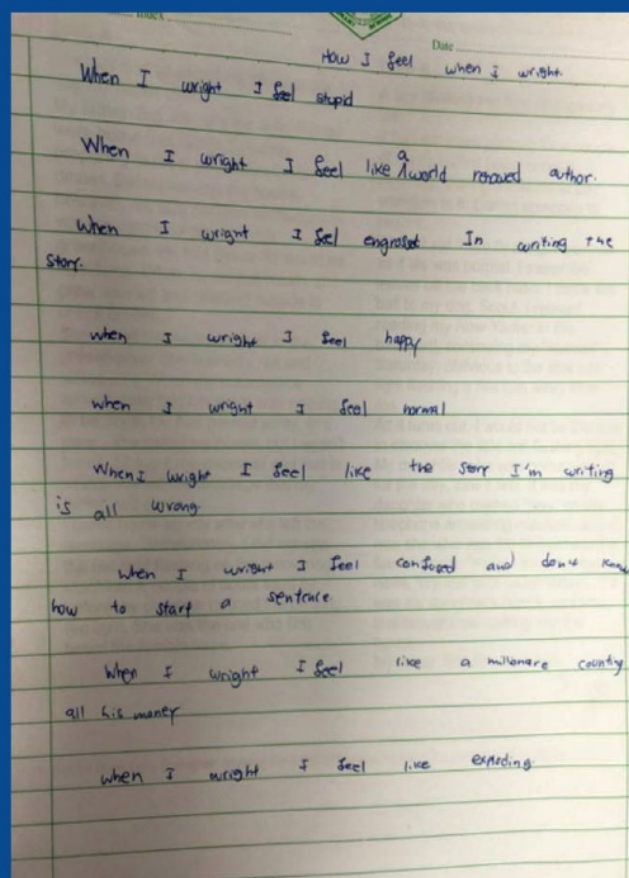 Index
Date
How I feel when I wright.
When I wright I feel stupid
When I wright I feel like a world renowed author.
When I wright I feel engrosed In writing the
story.
when I wright I feel happy
when I wright I feel normal
When I wright I feel like the story I'm writing
is all wrong.
when I wright I feel confused and don't know
how to start a sentence.
When I wright I feel like a millonare counting
all his money
when I wright I feel like exploding.